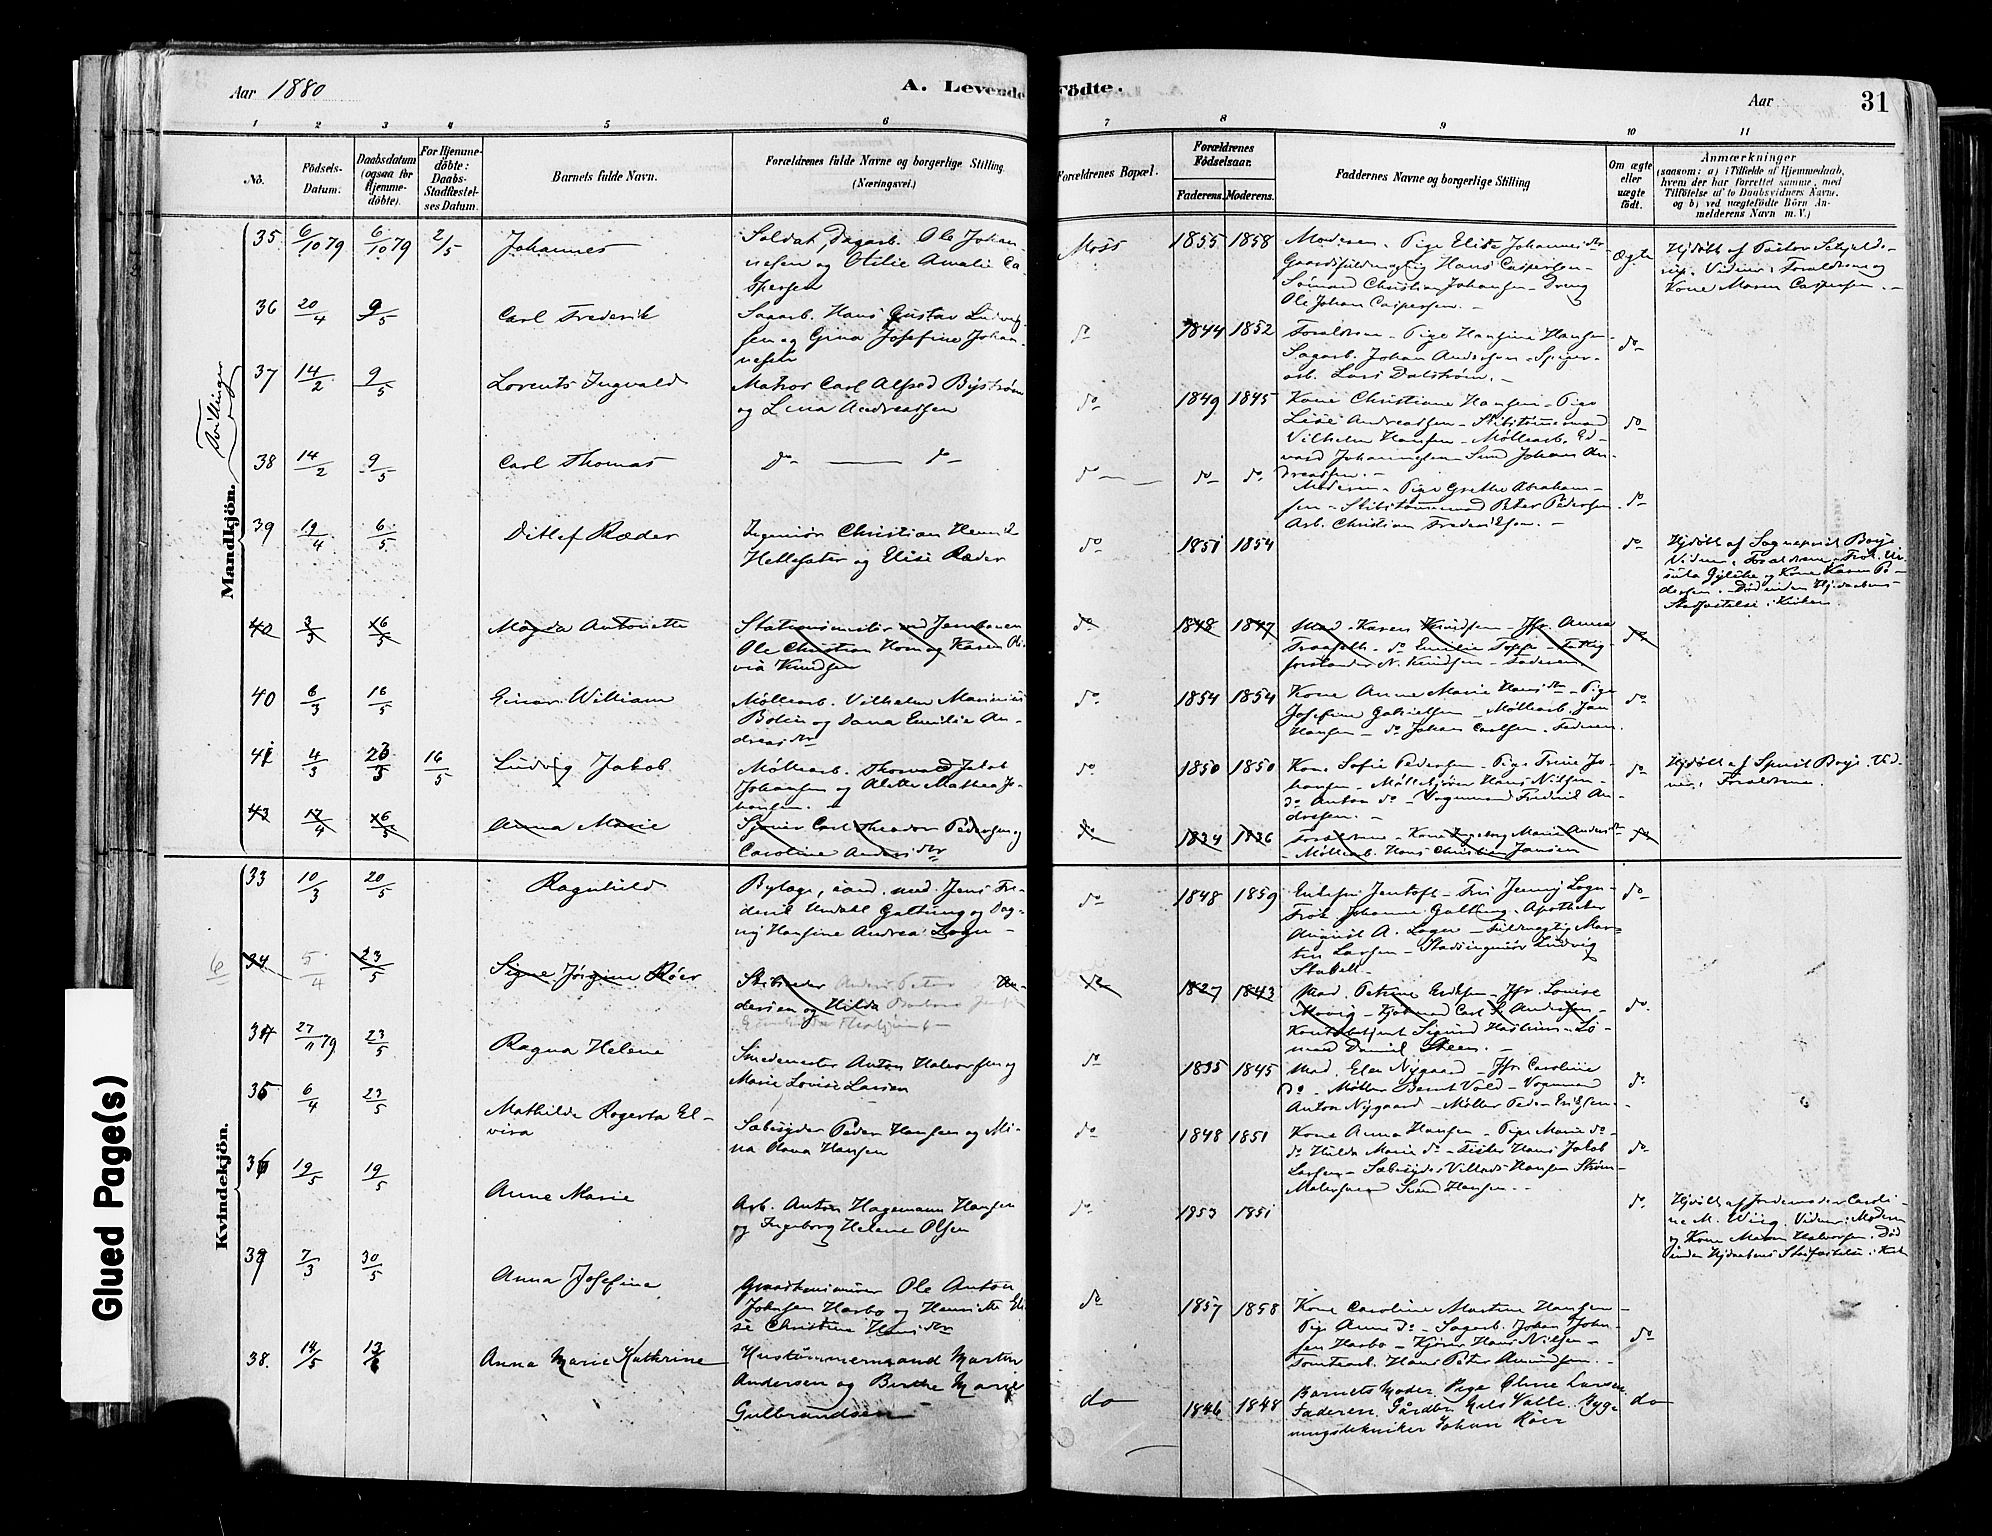 Aar 1880
A. Levende Födte.
Aar 31
1 2 3 4 5 6 7 8 9 10 11
No.
Födsels-Datum.
Daabsdatum (ogsaa for Hjemme-döbte).
For Hjemme-döbte: Daabs-Stadfæstel-ses Datum.
Barnets fulde Navn.
Forældrenes fulde Navne og borgerlige Stilling (Næringsvei.)
Forældrenes Bopæl.
Forældrenes Födselsaar.
Faderens. Moderens.
Faddernes Navne og borgerlige Stilling
Om ægte eller uægte födt.
Anmærkninger
(saasom: a) i Tilfælde af Hjemmedaab,
hvem der har forrettet samme, med
Tilföielse af to Daabsvidners Navne.
og b) ved uægtefödte Börn An-
melderens Navn m. V.)
Mandkjön.
Tvillinger
35 6/10 79 6/10 79 2/5 Johannes
Soldat, Dagarb. Ole Johan-
nesen og Otilie Amalie Ca-
spersen
Moss 1855 1858
Moderen. Pige Elise Johannesdtr
Gaardsfuldmægtig Hans Caspersen
Sømand Christian Johansen - Dreng
Ole Johan Caspersen. -
Ægte
Hjdøbt af Pastor Schjelde-
rup. Vidner: Forældrene og
Kone Maren Caspersen. -
36 20/4 9/5 Carl Frederik
Sagarb. Hans Gustav Ludvig-
sen og Gina Josefine Johan-
nesen
do 1844 1852
Forældrene - Pige Hansine Hansen -
Sagarb. Johan Andersen - Spiger-
arb. Lars Dalstrøm. -
do
37 14/2 9/5 Lorents Ingvald
Matros Carl Alfred Byström
og Lina Andreassen
do 1849 1845
Kone Christiane Hansen - Pige
Lise Andreassen - Skibstømmermand
Vilhelm Hansen - Møllearb. Ed-
vard Johannesen - Smed Johan An-
dreassen. -
do
38 14/2 9/5 Carl Thomas
do - do -
do - do - do
Moderen - Pige Grethe Abraham-
sen - Skibstømmermand Peter Pedersen
Arb. Christian Frederiksen. -
do
39 19/4 6/5 Ditlef Ræder
Ingeniør Christian Henrik
Hellesater og Elise Ræder
do 1851 1854
do
Hjdøbt af Sogneprest Borje
40 3/3 16/5 Magda Antonette
Stationsmester ved Jernbanen
Ole Christian Horn og Karen Oli-
via Knudsen
do 1848 1847
Mad. Karen Knudsen - Jfr. Anna
forstander N. Knudsen - Faderen
do
40 6/3 16/5 Einar William
Møllearb. Vilhelm Marinius
Bolin og Dana Emilie An-
dreasdtr
do 1854 1854
Kone Anne Marie Hansdtr - Pige
Josefine Gabrielsen - Møllearb. Jan
Hansen - do Johan Carlsen. Faderen
do
41 4/3 23/3 16/5 Ludvig Jakob
Møllearb. Thorvald Jakob
Johansen og Alette Mathea Jo-
hansen. -
do 1850 1850
Kone Sofie Pedersen - Pige Trine Jo-
hansen - Møllebjører Hans Nilsen -
do Anton do - Vognmand Fredrik An-
dresen. -
do
Hjdøbt af Spresit Borje. Vid-
ner: Forældrene.
43 17/4 16/5 Anna Marie
Carl Theodor Pedersen og
Caroline Andersdtr
do 1834 1836
Forældrene - Kone Ingeborg Marie Andersdtr
- Møllearb. Hans Christian Jansen
do
Kvindekjön.
33 10/3 20/5 Ragnhild
Byfoge, cand. med. Jens Fre-
derik Undall Galtung og Dag-
ny Hansine Andrea Løgn -
do 1848 1859
Enkefru Jentoft - Frk Jenny Logn -
Frøk. Johanne Galtung - Apotheker
August A. Logen - Fuldmægtig Mar-
tin Larsen - Stadsingeniør Ludvig
Stabell -
do
34 5/4 23/5 Signe Jørgine Röer
Anders Peter An-
dersen og Hilda Barbara
do 1827 1843
Mad. Petrine Eriksen - Jfr. Louise
Movig - Kjøbmand Carl S. Andersen -
Kontorbetjent Sigurd Hasluns - Sø-
mand Daniel Steen. -
do
34 27/11 79 23/5 Ragna Helene
Smedemester Anton Halvorsen og
Marie Lovise Larsen
do 1835 1845
Mad. Elen Nygaard - Jfr. Caroline
do - Møller Bernt Vold - Vognmand
Anton Nygaard - Møller Peder Eriksen.
do
35 6/4 23/5 Mathilde Rogerta El-
vira
Sæbesyder Peder Hansen og Mi-
na Olava Hansen
do 1848 1851
Kone Anna Hansen - Pige Marie do -
do Hulda Marie do - Fisker Hans Jakob
Larsen - Sæbesyder Villads Hansen Strøm -
Malersvend Svend Hansen. -
do
36 19/5 19/5 Anne Marie
Arb. Anton Hagemann Hansen
og Ingeborg Helene Olsen
do 1853 1851
do
Hjdøbt af Jordemoder Caroli-
ne M. Wiig. Vidner: Moderen
og Kone Maren Halvorsen. Død
37 7/3 30/5 Anna Josefine
Ole Anton
Johnsen Harbo og Henriette Eli-
se Christine Hansdtr
do 1857 1858
Kone Caroline Martine Hansen -
Pige Anne do - Sagarb. Johan John-
sen Harbo - Kjører Hans Nilsen -
Tomtearb. Hans Peter Amundsen. -
do
38. 14/5 13/6 Anna Marie Kathrine
Hustømmermand Martin
Andersen og Berthe Marie
Gulbrandsen
do 1846 1848
Barnets Moder. Pige Oline Larsen.
Faderen. Gårdbr. Nils Valle. Byg-
ningstekniker Johan Röer
do
Glued Page(s)